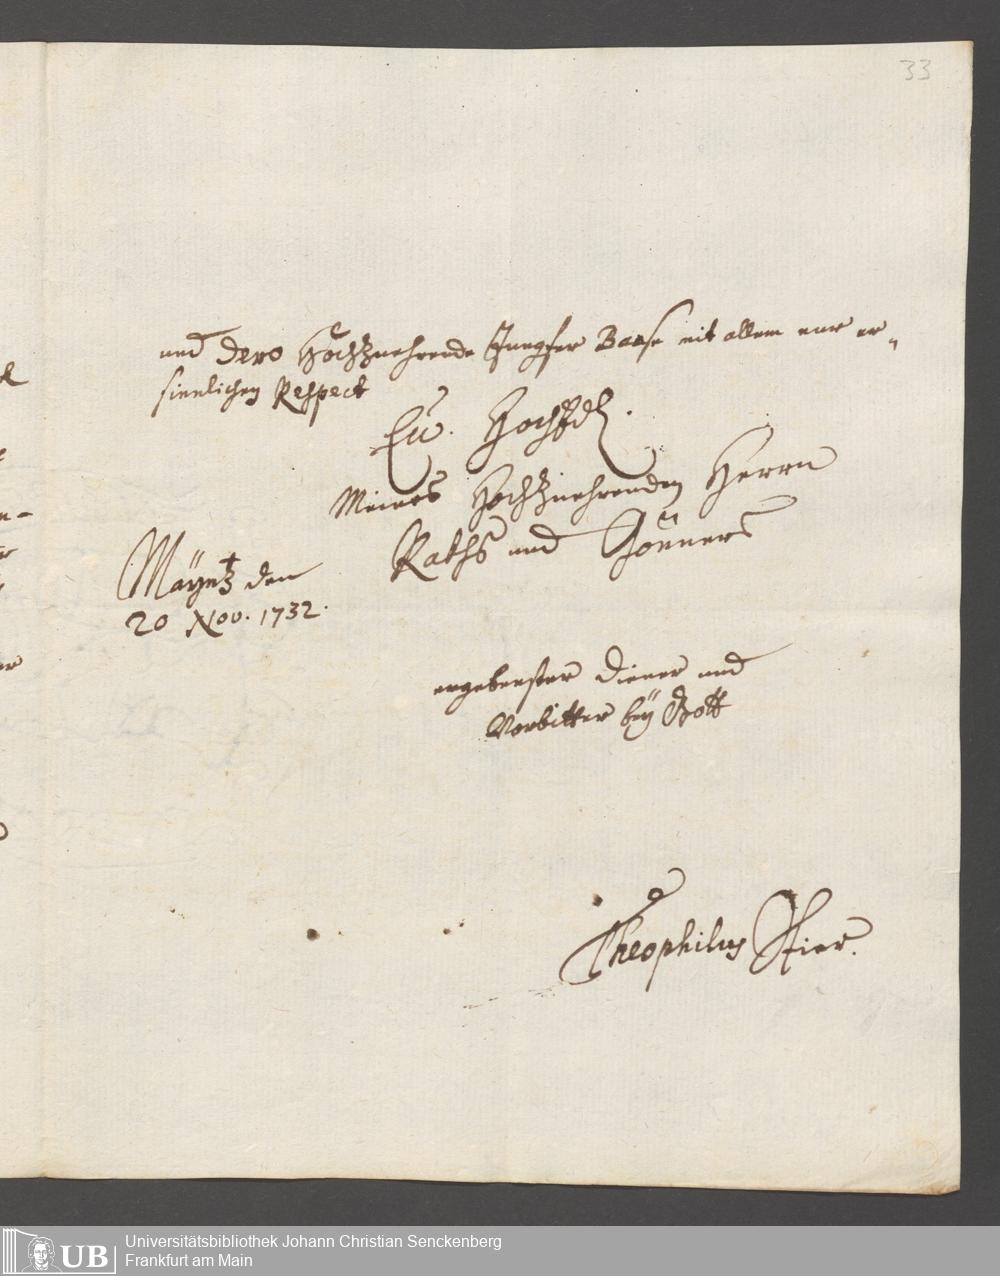 33
und Dero Hochzuehrende Jungfer Baase mit allem nur er-
sinnlichen Respect
Ew. HochEdl.
Meines Hochzuehrenden Herrn
Raths und Gönners
Mäyntz den
20 Nov. 1732.
ergebenster Diener und
Vorbitter bey Gott
Theophilus Stier.
UB
Universitätsbibliothek Johann Christian Senckenberg
Frankfurt am Main